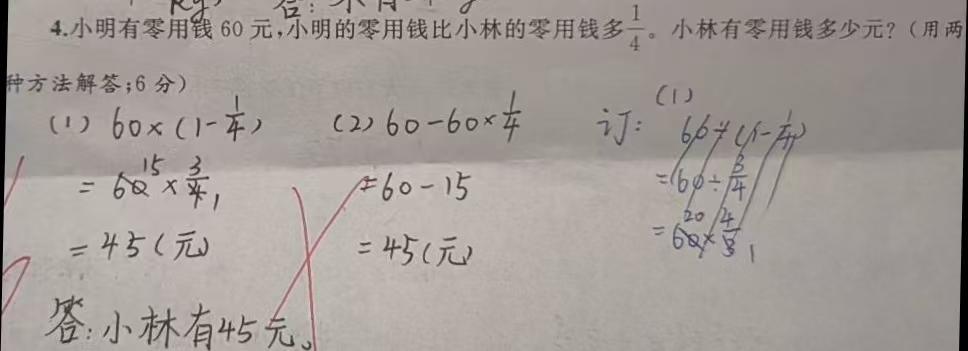 kg
答:
4.小明有零用钱60元,小明的零用钱比小林的零用钱多1/4。小林有零用钱多少元?(用两
种方法解答;6分)
(1) 60×(1-1/4)
=60×3/4
=45(元)
(2) 60-60×1/4
=60-15
=45(元)
答:小林有45元。
订:
(1)
60÷(1-1/4)
=60÷3/4
=60×4/3